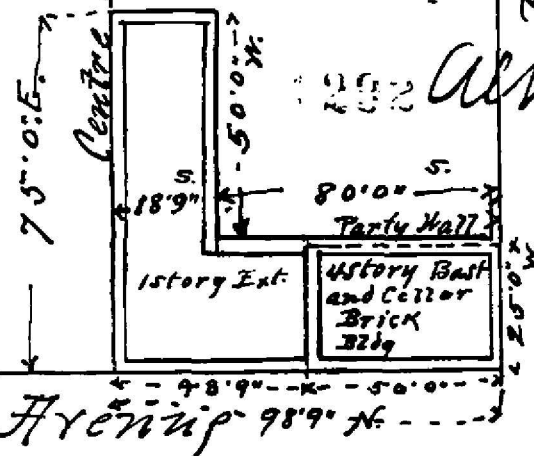 75'0"E.
Centre
50'0" W.
1202
S.
18'9"
80'0" S.
Party Wall
1story Ext.
4story Bast
and Cellar
Brick
Bldg
25'0" W
48'9" 50'0"
98'9" N.